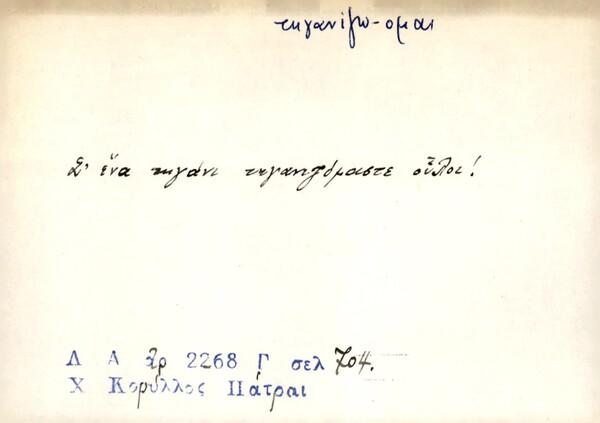 τηγανίζω-ομαι
Σ' ἕνα τηγάνι τηγανιζόμαστε οὗλοι!
Λ Α ἀρ 2268 Γ σελ 704.
Χ Κορύλλος Πάτραι